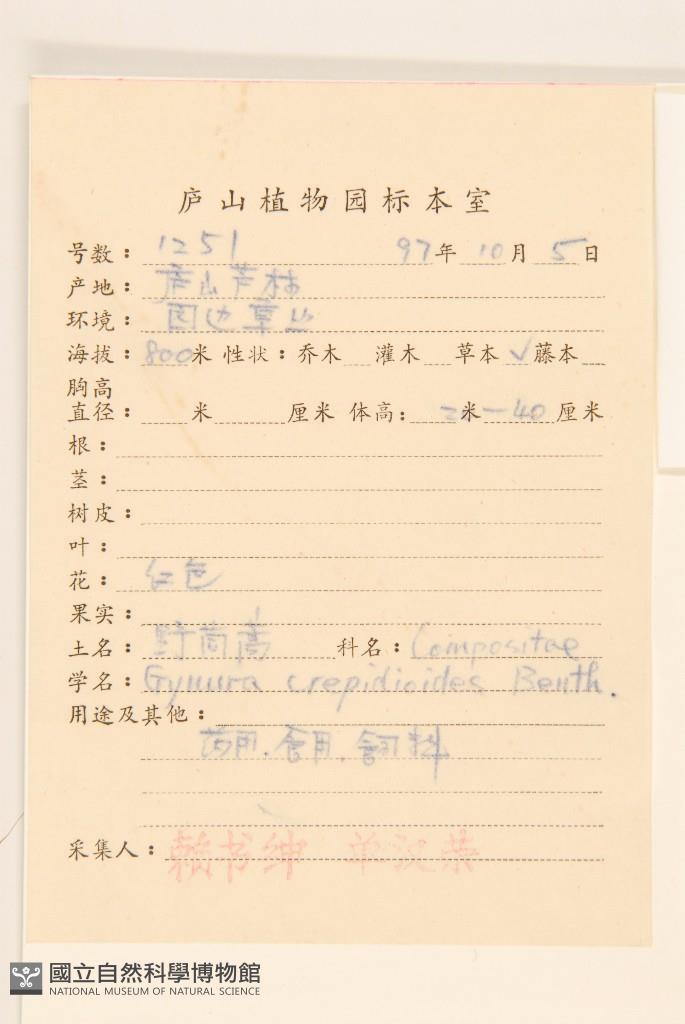 庐山植物园标本室
号数：1251 97年10月5日
产地：庐山芦林
环境：园边草丛
海拔：800米 性状：乔木 灌木 草本√藤本
胸高
直径： 米 厘米 体高： 二米—40厘米
根：
茎：
树皮：
叶：
花：红色
果实：
土名：野茼蒿 科名：Compositae
学名：Gynura crepidioides Benth.
用途及其他：
药用.食用.饲料
采集人：赖书绅 单汉荣
國立自然科學博物館
NATIONAL MUSEUM OF NATURAL SCIENCE